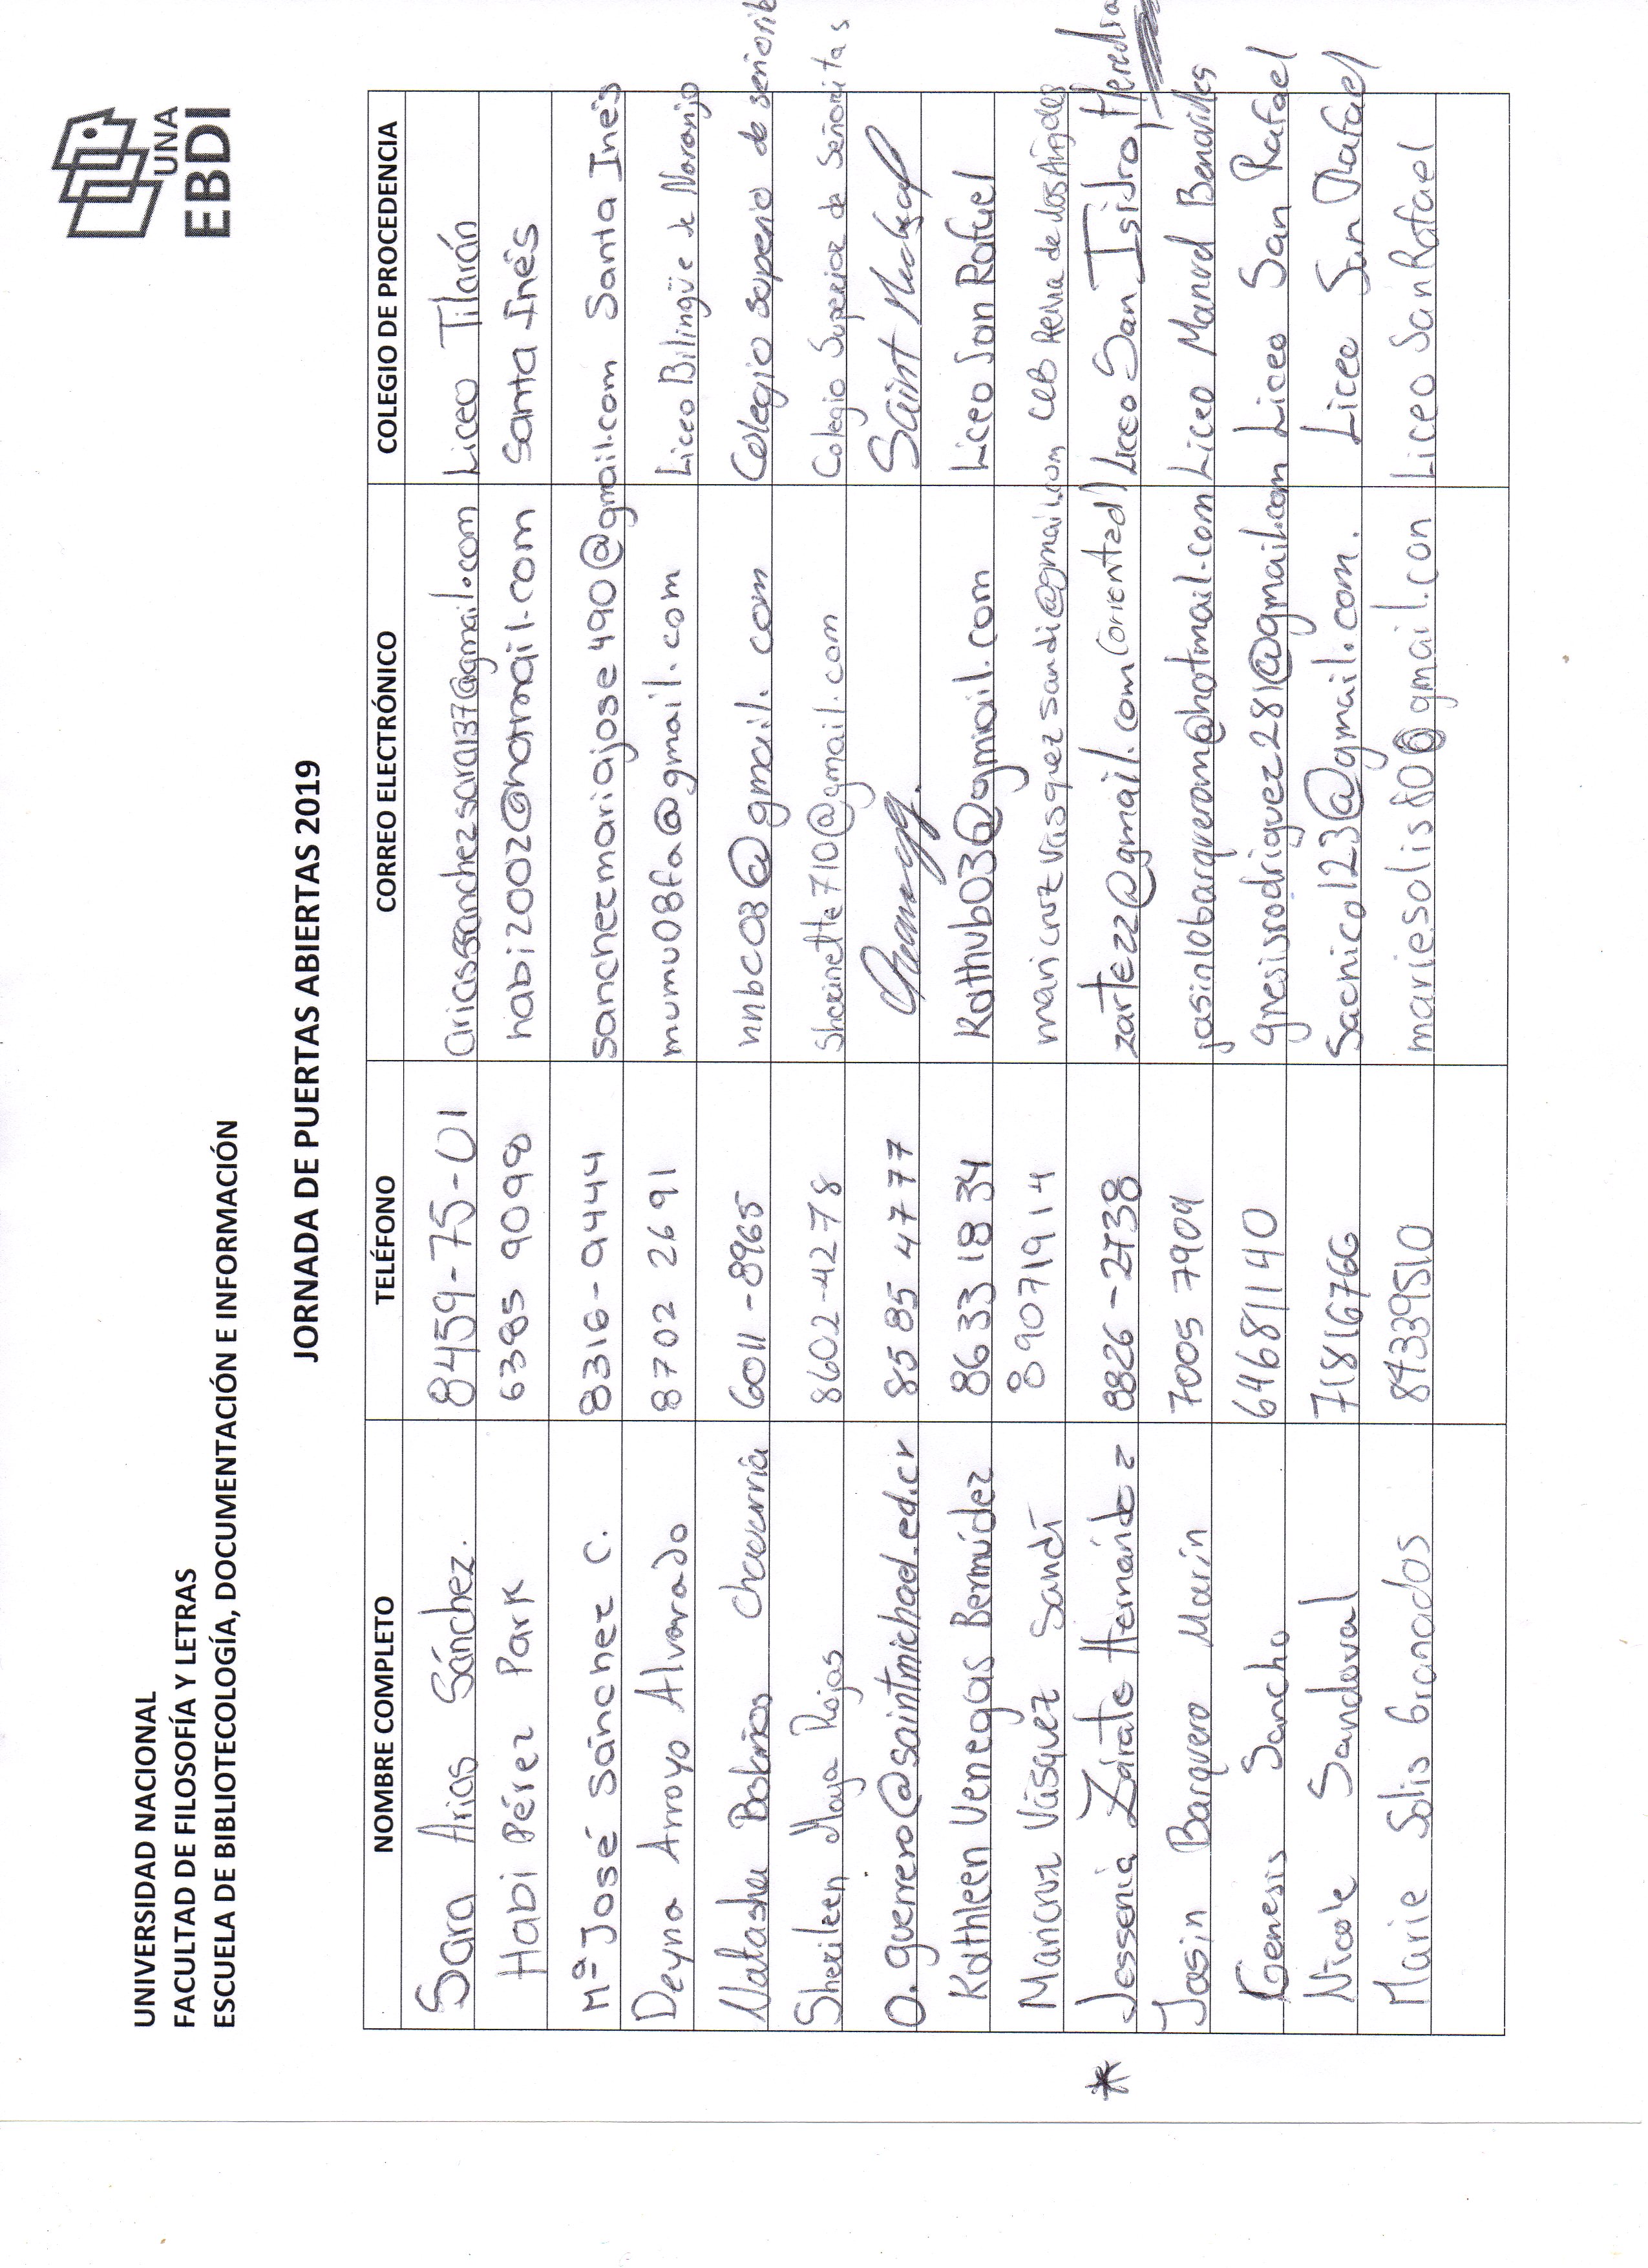 UNA
EBDI
UNIVERSIDAD NACIONAL
FACULTAD DE FILOSOFÍA Y LETRAS
ESCUELA DE BIBLIOTECOLOGÍA, DOCUMENTACIÓN E INFORMACIÓN
JORNADA DE PUERTAS ABIERTAS 2019
NOMBRE COMPLETO TELÉFONO CORREO ELECTRÓNICO COLEGIO DE PROCEDENCIA
Sara Arias Sánchez. 8459-75-01 ariassanchezsara137@gmail.com Liceo Tilarán
Habi Pérez Park 6385 9098 habi2002@hotmail.com Santa Inés
Mª José Sánchez C. 8316-9444 sanchezmariajose490@gmail.com Santa Inés
Deyna Arroyo Alvarado 8702 2691 mumu08fa@gmail.com Liceo Bilingüe de Naranjo
Natasha Bolaños Chavarría 6011-8965 nnbc03@gmail.com Colegio superio de señorit
Sherileen Moya Rojas 8602-4278 Sherinette710@gmail.com Colegio Superior de Señoritas
O.guerrero@saintmichael.ed.cr 8585 4777 Saint Michael
Kathleen Venegas Bermúdez 8633 18 34 Kathvb03@gmail.com Liceo San Rafael
Maricruz Vásquez Sandí 89071914 maricruzvasquezsandi@gmail.com CEB Reina de los Ángeles
* Jessenia Zárate Hernández 8826-2738 zarte22@gmail.com (orientad) Liceo San Isidro, Heredia
Jasin Barquero Marín 7005 7909 jasin10barquerom@hotmail.com Liceo Manuel Benavides
Genesis Sancho 64681140 gnesisrodriguez281@gmail.com Liceo San Rafael
Nicole Sandoval 71816766 Sacnico123@gmail.com. Liceo San Rafael
Marie Solis Granados 84339510 mariesolis80@gmail.con Liceo San Rafael